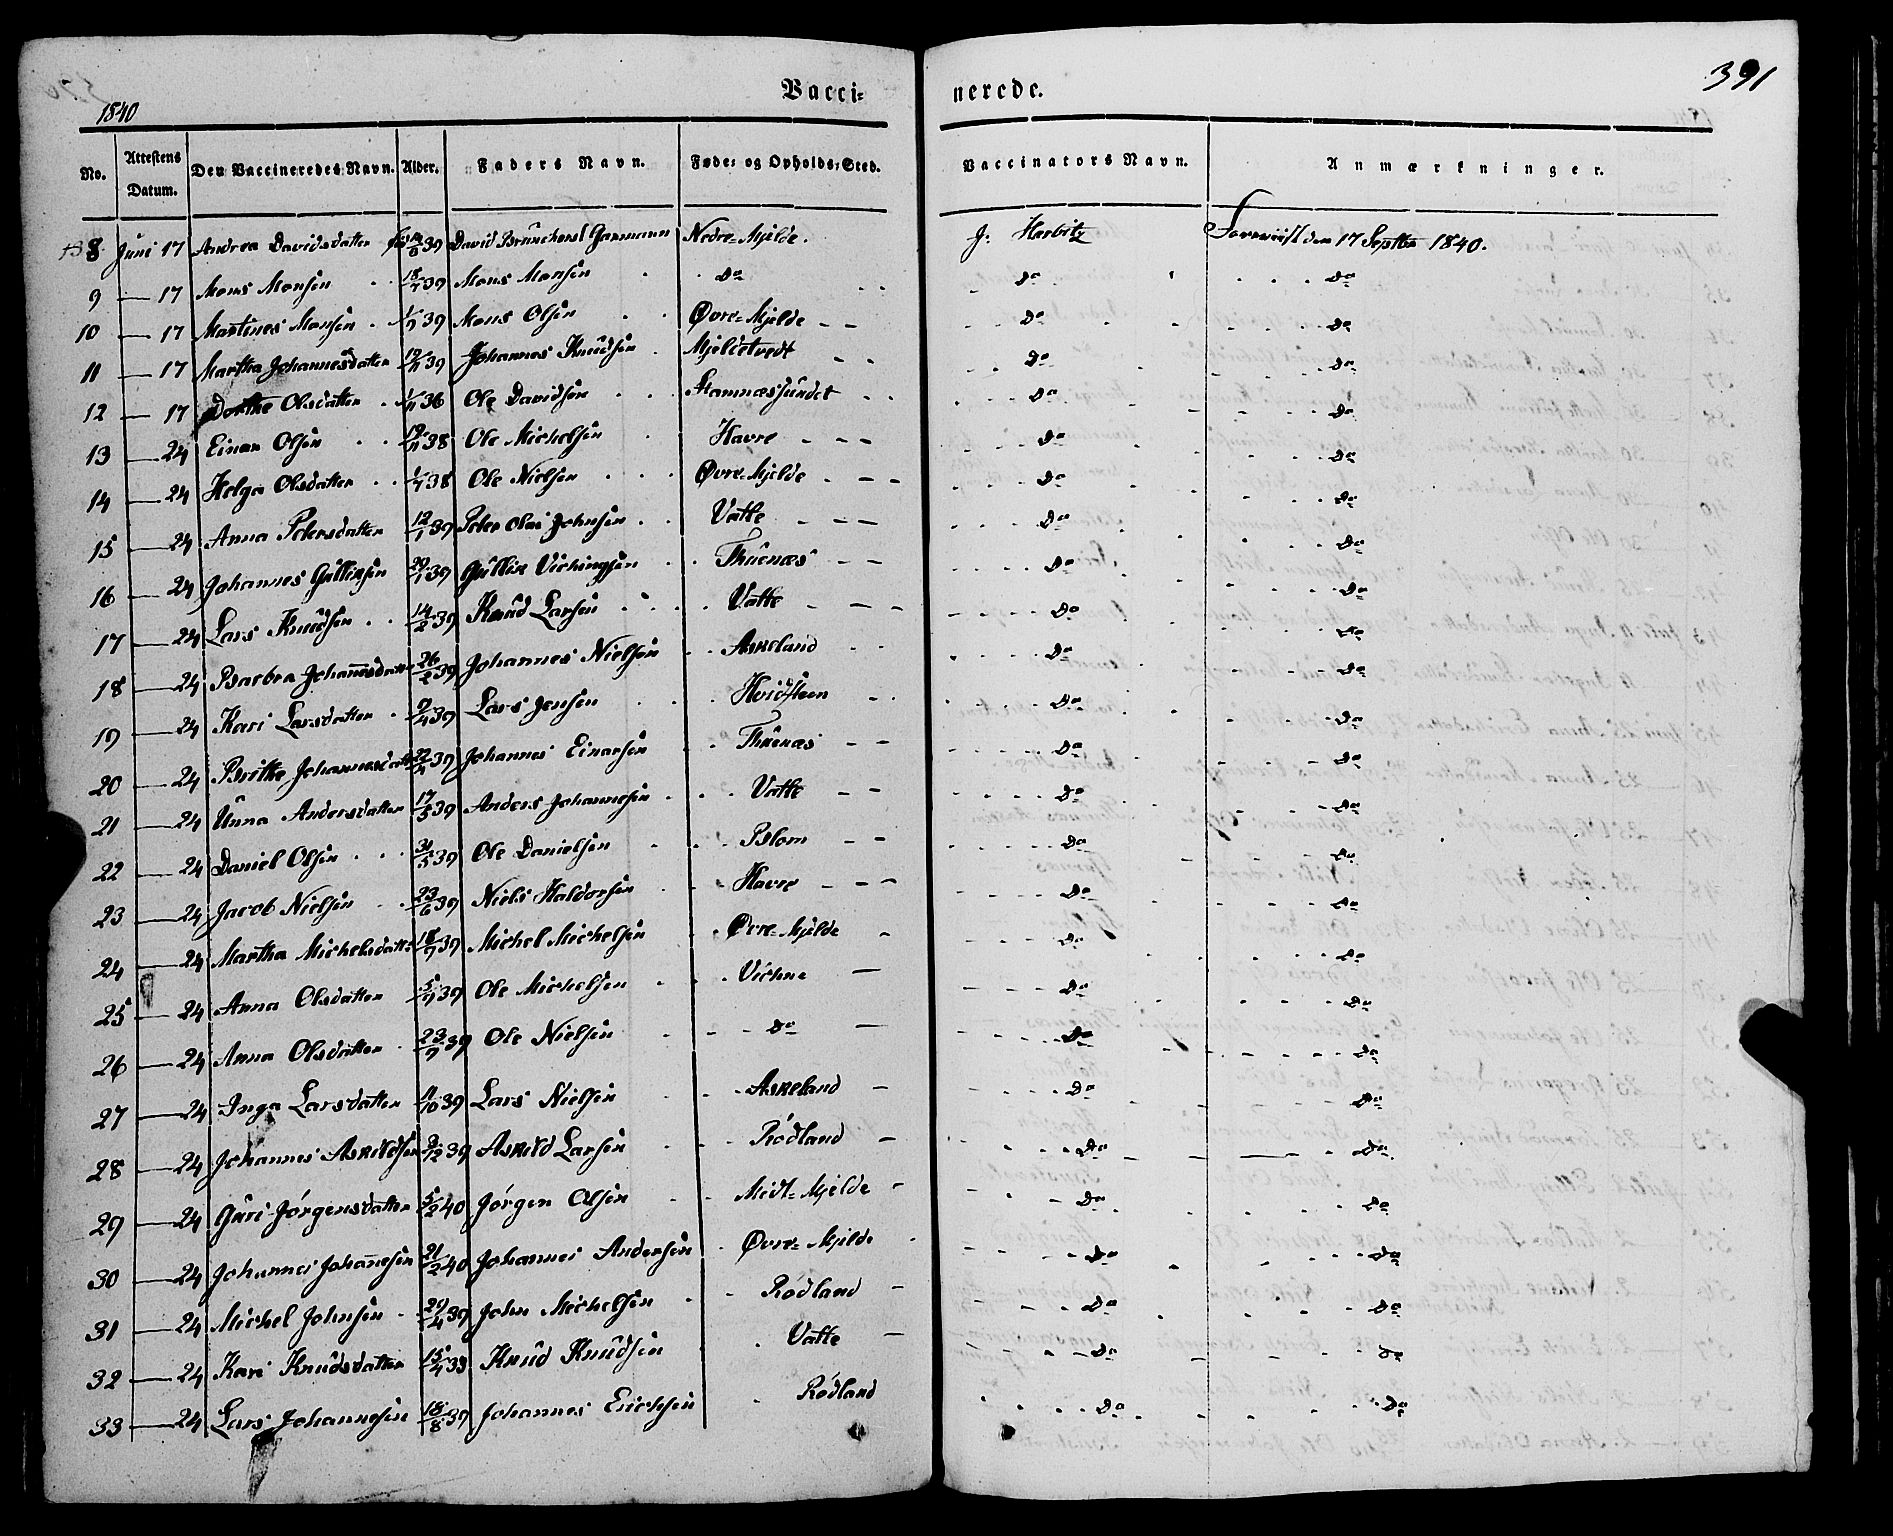 391
1840
Vacci= nerede.
No. Attestens Datum. Den Vaccineredes Navn. Alder. Faders Navn. Føde= og Opholds=Sted. Vaccinators Navn. Anmærkninger.
8 Juni 17 Andrea Davidsdatter 39 David Garmann Nedre=Mjelde. J. Herbitz den 17 Septbr 1840.
9 — 17 Mons Monsen 18/7 39 Mons Monsen Do Do Do
10 — 17 Martines Monsen 1/9 39 Mons Olsen Øvre=Mjelde Do Do
11 — 17 Martha Johannesdatter 12/11 39 Johannes Knudsen Mjeldetvedt Do Do
12 — 17 Dorthe Olsdatter 1/11 36 Ole Davidsen Stamnæssundet Do Do
13 — 24 Einar Olsen 19/11 38 Ole Michelsen Havre Do Do
14 — 24 Helga Olsdatter 1/7 38 Ole Nielsen Øvre=Mjelde Do Do
15 — 24 Anna Petersdatter 12/1 39 Peter Olai Johnsen Vatte Do Do
16 — 24 Johannes Gulliksen 29/1 39 Gullik Vichingsen Thuenæs Do Do
17 — 24 Lars Knudsen 14/2 39 Knud Larsen Vatte Do Do
18 — 24 Barbra Johannesdatter 26/2 39 Johannes Nielsen Askeland Do Do
19 — 24 Kari Larsdatter 9/4 39 Lars Jensen Hvidsteen Do Do
20 — 24 Brithe Johannesdatter 22/4 39 Johannes Einarsen Thuenæs Do Do
21 — 24 Unna Andersdatter 17/5 39 Anders Johannesen Vatte Do Do
22 — 24 Daniel Olsen 31/5 39 Ole Danielsen Blom Do Do
23 — 24 Jacob Nielsen 23/6 39 Niels Haldorsen Havre Do Do
24 — 24 Martha Michelsdatter 18/9 39 Michel Michelsen Øvre=Mjelde Do Do
25 — 24 Anna Olsdatter 5/9 39 Ole Michelsen Vichne Do Do
26 — 24 Anna Olsdatter 23/9 39 Ole Nielsen Do Do Do
27 — 24 Inga Larsdatter 11/10 39 Lars Nielsen Askeland Do Do
28 — 24 Johannes Askildsen 9/12 39 Askild Larsen Rödland Do Do
29 — 24 Guri Jörgensdatter 5/2 40 Jörgen Olsen Midt=Mjelde Do Do
30 — 24 Johannes Johannesen 21/2 40 Johannes Andersen Øvre=Mjelde Do Do
31 — 24 Michel Johnsen 29/4 39 John Michelsen Rödland Do Do
32 — 24 Kari Knudsdatter 15/4 39 Knud Knudsen Vatte Do Do
33 — 24 Lars Johannesen 18/8 39 Johannes Erichsen Rödland Do Do